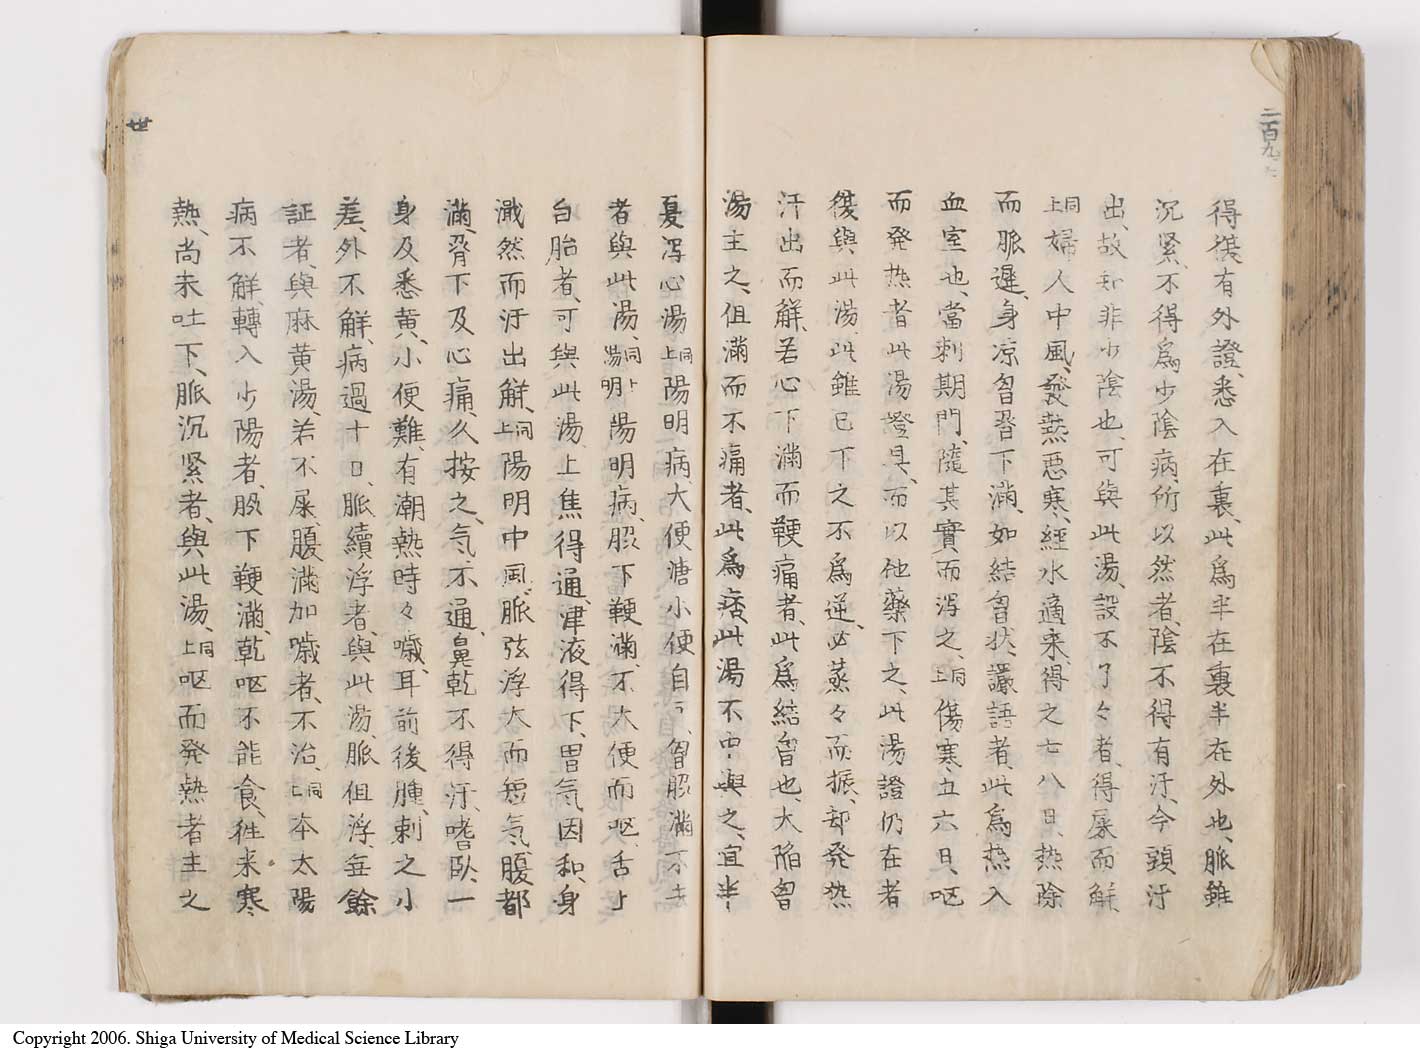 二百九
得復有外證、悉入在裏、此爲半在裏半在外也、脈雖
沉緊、不得爲少陰病、所以然者、陰不得有汗、今頭汗
出、故知非少陰也、可與此湯、設不了々者、得屎而觧
同上婦人中風、發熱悪寒、經水適來、得之七八日、热除
而脈遲、身凉胷脇下滿、如結胷狀、讝語者、此爲热入
血室也、當刺期門、隨其實而瀉之、同上傷寒、五六日、呕
而発热者此湯證具、而以他藥下之、此湯證仍在者
復與此湯、此雖已下之不爲逆、必蒸々而振、却発热
汗出而觧、若心下滿而鞕痛者、此爲結胷也、大陥胷
湯主之、但滿而不痛者、此爲痞、此湯不中與之、宜半
夏瀉心湯同上陽明病、大便溏小便自可、胷脇滿不去
者與此湯、同上陽明病、脇下鞕滿、不大便而呕、舌上
白胎者、可與此湯、上焦得通、津液得下、胃氣因和、身
濈然而汗出觧、同上陽明中風、脈弦浮大而短氣、腹都
滿、脅下及心痛、久按之、氣不通、鼻乾不得汗、嗜臥、一
身及悉黄、小便難、有潮熱時々噦、耳前後腫、刺之小
差、外不觧、病過十日、脈續浮者、與此湯、脈但浮、無餘
証者、與麻黄湯、若不尿、腹滿加噦者、不治、同上本太陽
病不觧、轉入少陽者、脇下鞕滿、乾呕不能食、往来寒
熱、尚未吐下、脈沉緊者、與此湯、同上呕而発熱者主之
丗
Copyright 2006. Shiga University of Medical Science Library